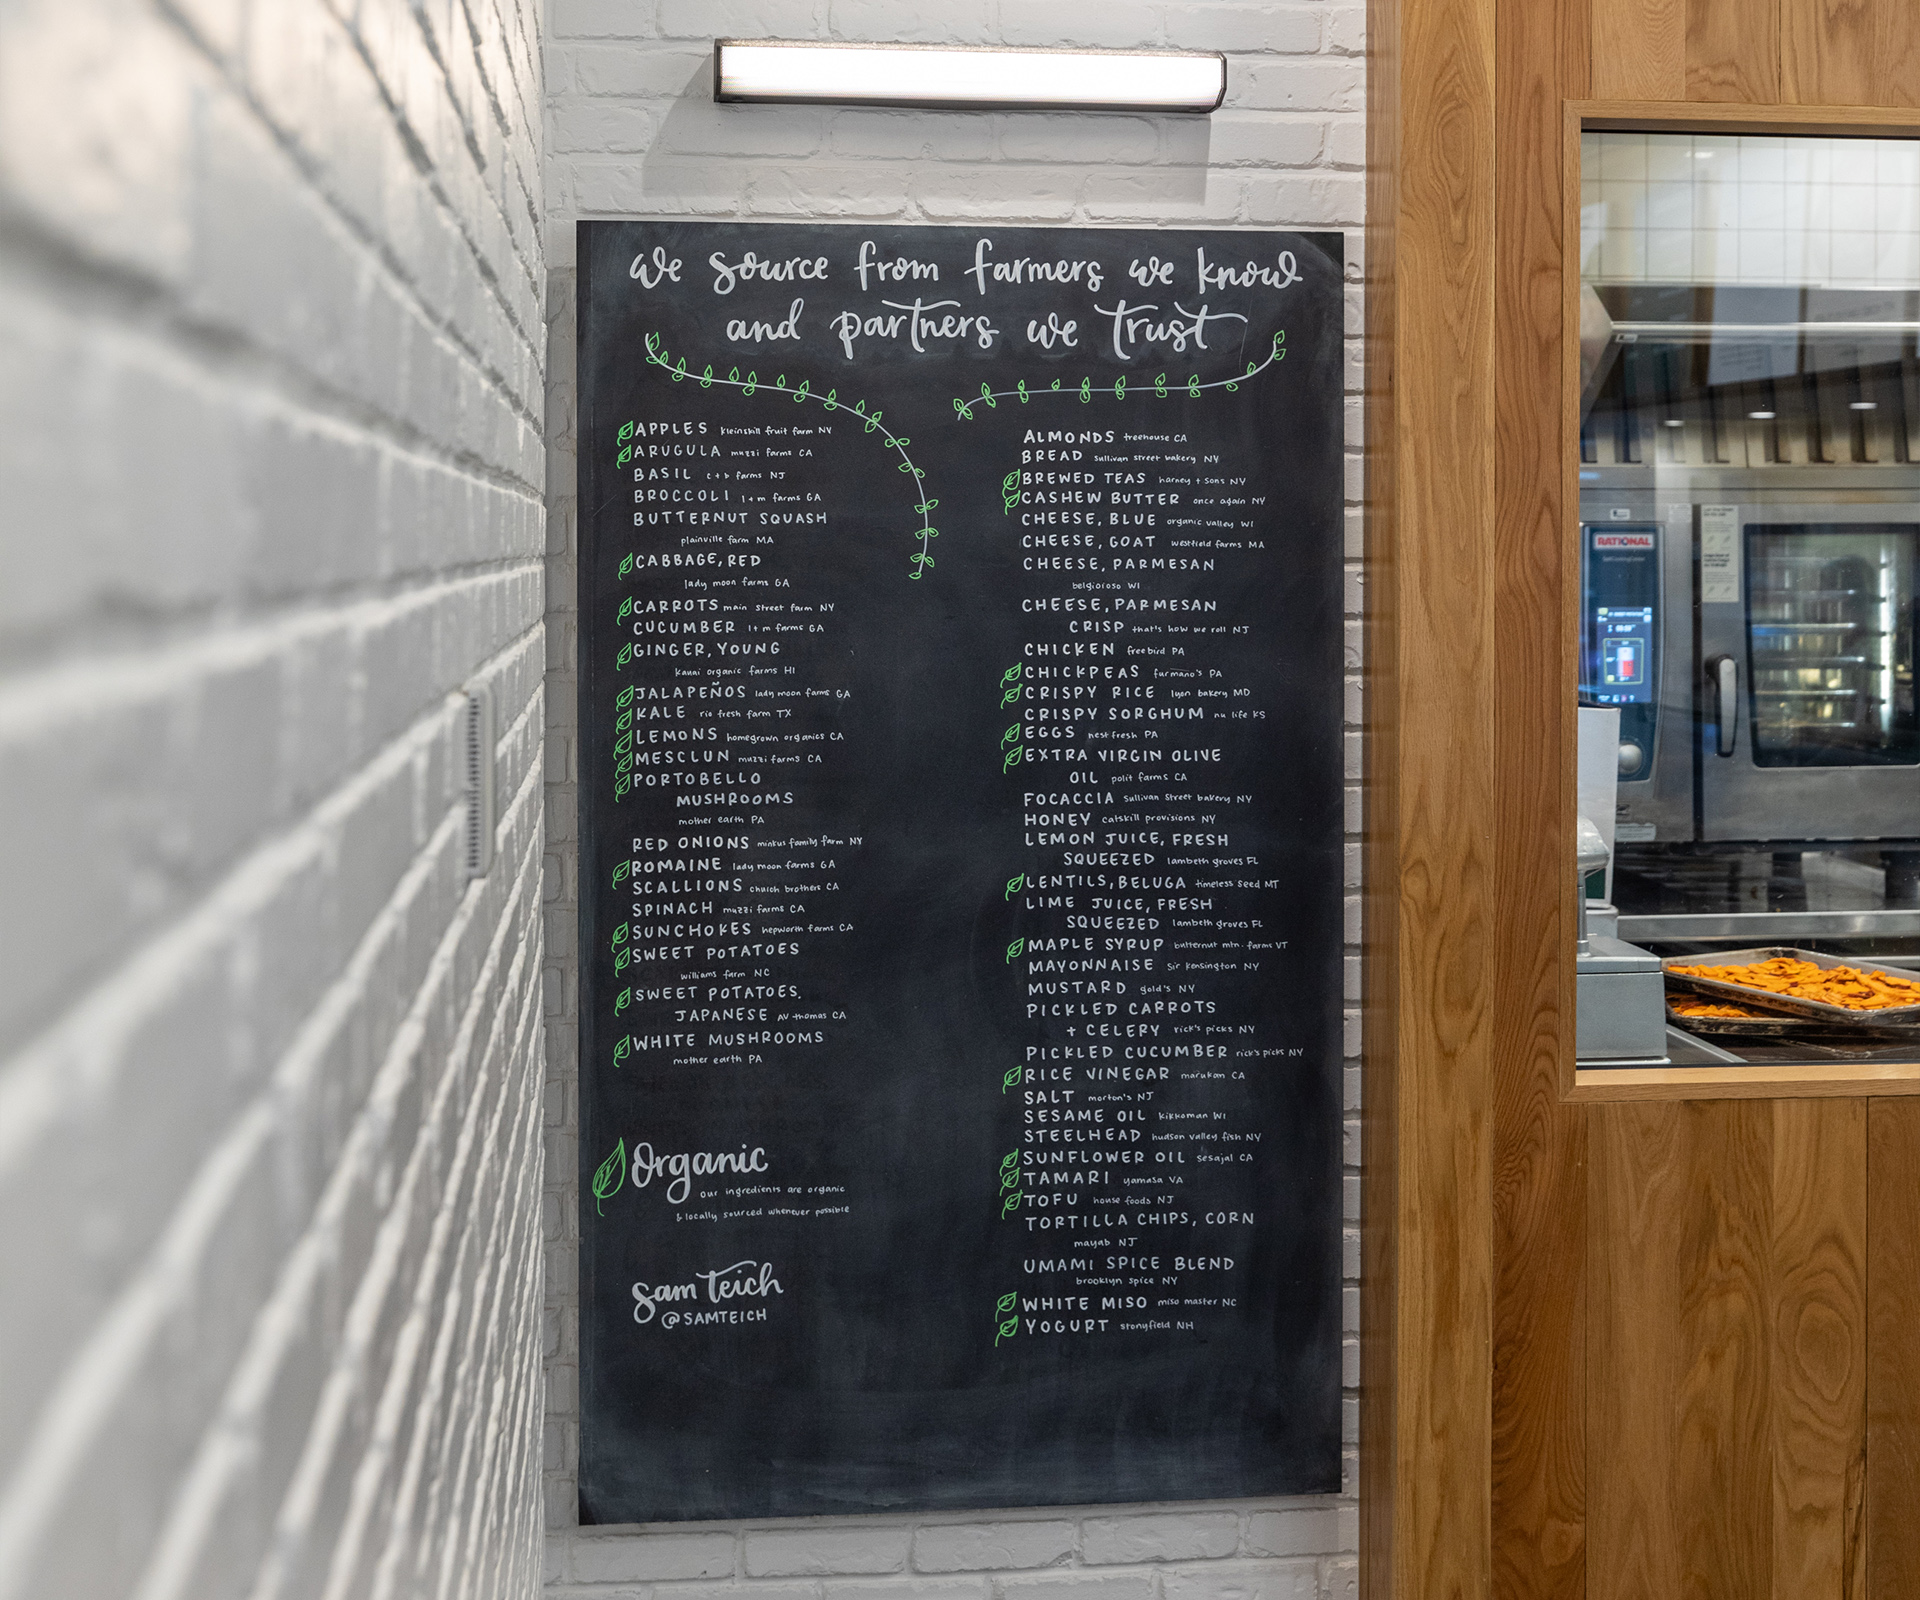 we source from farmers we know
and partners we trust
APPLES kleinskill fruit farm NY
ARUGULA muzzi farms CA
BASIL c+b farms NJ
BROCCOLI l+m farms GA
BUTTERNUT SQUASH
plainville farm MA
CABBAGE, RED
lady moon farms GA
CARROTS main street farm NY
CUCUMBER l+m farms GA
GINGER, YOUNG
kauai organic farms HI
JALAPEÑOS lady moon farms GA
KALE rio fresh farm TX
LEMONS homegrown organics CA
MESCLUN muzzi farms CA
PORTOBELLO
MUSHROOMS
mother earth PA
RED ONIONS minkus family farm NY
ROMAINE lady moon farms GA
SCALLIONS church brothers CA
SPINACH muzzi farms CA
SUNCHOKES hepworth farms CA
SWEET POTATOES
williams farm NC
SWEET POTATOES,
JAPANESE AV thomas CA
WHITE MUSHROOMS
mother earth PA
Organic
our ingredients are organic
& locally sourced whenever possible
sam teich
@SAMTEICH
ALMONDS treehouse CA
BREAD sullivan street bakery NY
BREWED TEAS harney + sons NY
CASHEW BUTTER once again NY
CHEESE, BLUE organic valley WI
CHEESE, GOAT westfield farms MA
CHEESE, PARMESAN
belgioroso WI
CHEESE, PARMESAN
CRISP that's how we roll NJ
CHICKEN freebird PA
CHICKPEAS furmano's PA
CRISPY RICE lyon bakery MD
CRISPY SORGHUM nu life KS
EGGS nestfresh PA
EXTRA VIRGIN OLIVE
OIL polit farms CA
FOCACCIA sullivan street bakery NY
HONEY catskill provisions NY
LEMON JUICE, FRESH
SQUEEZED lambeth groves FL
LENTILS, BELUGA timeless seed MT
LIME JUICE, FRESH
SQUEEZED lambeth groves FL
MAPLE SYRUP butternut mtn. farms VT
MAYONNAISE sir kensington NY
MUSTARD gold's NY
PICKLED CARROTS
+ CELERY rick's picks NY
PICKLED CUCUMBER rick's picks NY
RICE VINEGAR marukan CA
SALT morton's NJ
SESAME OIL kikkoman WI
STEELHEAD hudson valley fish NY
SUNFLOWER OIL sesajal CA
TAMARI yamasa VA
TOFU house foods NJ
TORTILLA CHIPS, CORN
mayab NJ
UMAMI SPICE BLEND
brooklyn spice NY
WHITE MISO miso master NC
YOGURT stonyfield NH
RATIONAL